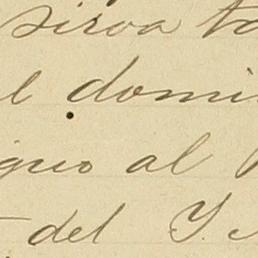 sirva ta
l domi
guo al
del Y.